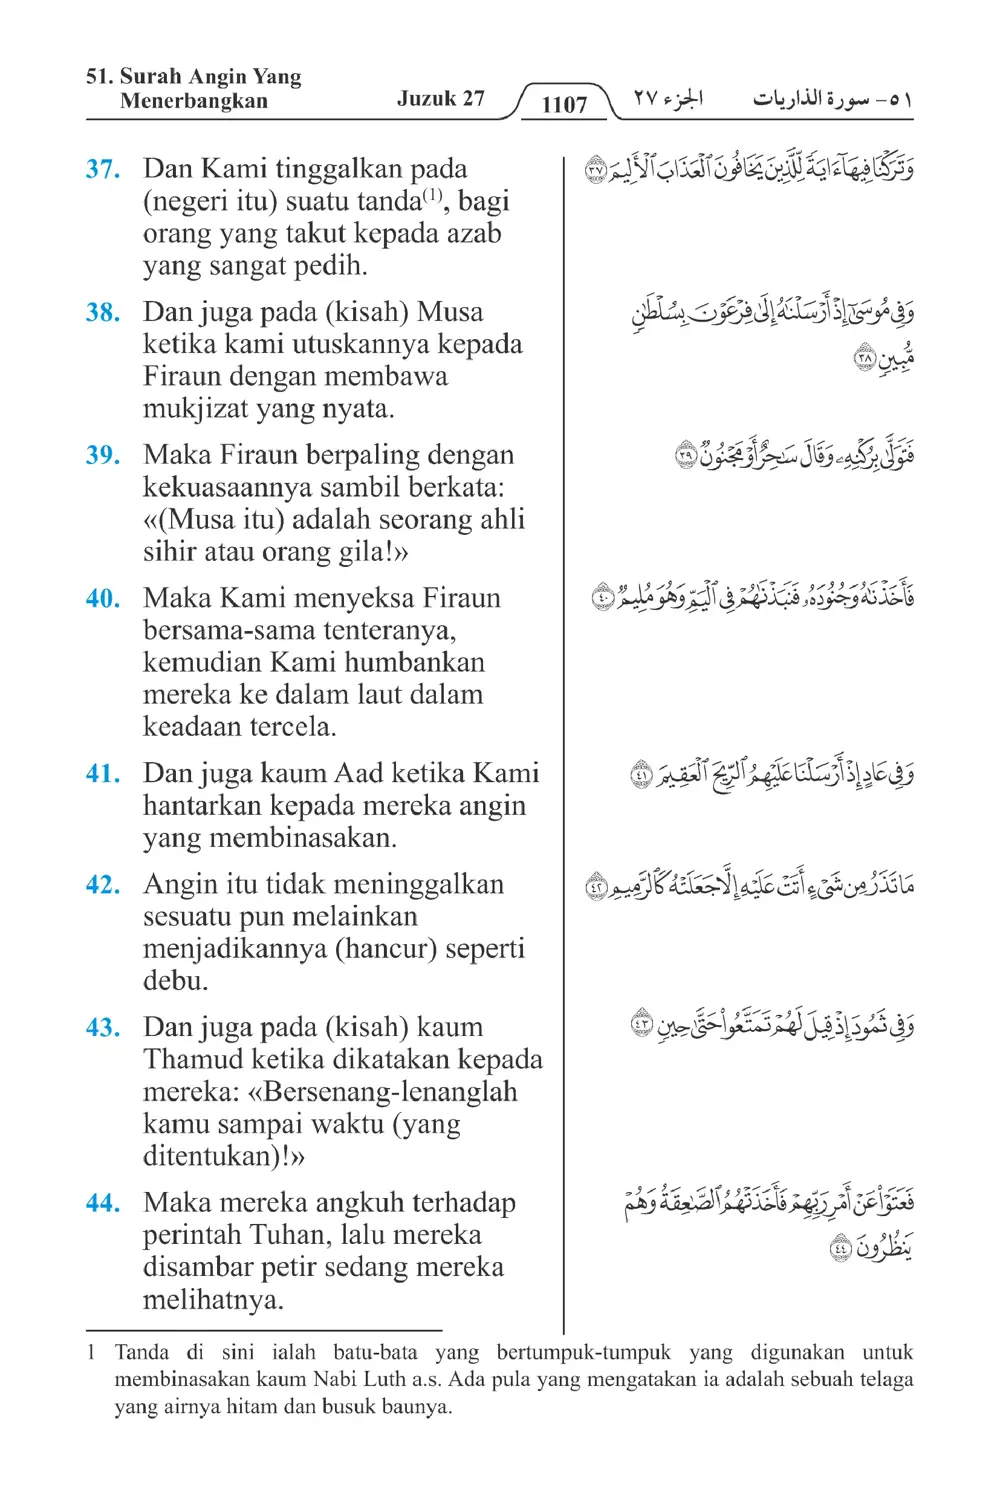 51. Surah Angin Yang
Menerbangkan
Juzuk 27
1107
الجزء ٢٧
٥١- سورة الذاريات
37. Dan Kami tinggalkan pada
(negeri itu) suatu tanda(1), bagi
orang yang takut kepada azab
yang sangat pedih.
وَتَرَكْنَا فِيهَآ ءَايَةً لِّلَّذِينَ يَخَافُونَ ٱلْعَذَابَ ٱلْأَلِيمَ ٣٧
38. Dan juga pada (kisah) Musa
ketika kami utuskannya kepada
Firaun dengan membawa
mukjizat yang nyata.
وَفِى مُوسَىٰٓ إِذْ أَرْسَلْنَٰهُ إِلَىٰ فِرْعَوْنَ بِسُلْطَٰنٍ
مُّبِينٍ ٣٨
39. Maka Firaun berpaling dengan
kekuasaannya sambil berkata:
«(Musa itu) adalah seorang ahli
sihir atau orang gila!»
فَتَوَلَّىٰ بِرُكْنِهِۦ وَقَالَ سَٰحِرٌ أَوْ مَجْنُونٌ ٣٩
40. Maka Kami menyeksa Firaun
bersama-sama tenteranya,
kemudian Kami humbankan
mereka ke dalam laut dalam
keadaan tercela.
فَأَخَذْنَٰهُ وَجُنُودَهُۥ فَنَبَذْنَٰهُمْ فِى ٱلْيَمِّ وَهُوَ مُلِيمٌ ٤٠
41. Dan juga kaum Aad ketika Kami
hantarkan kepada mereka angin
yang membinasakan.
وَفِى عَادٍ إِذْ أَرْسَلْنَا عَلَيْهِمُ ٱلرِّيحَ ٱلْعَقِيمَ ٤١
42. Angin itu tidak meninggalkan
sesuatu pun melainkan
menjadikannya (hancur) seperti
debu.
مَا تَذَرُ مِن شَىْءٍ أَتَتْ عَلَيْهِ إِلَّا جَعَلَتْهُ كَٱلرَّمِيمِ ٤٢
43. Dan juga pada (kisah) kaum
Thamud ketika dikatakan kepada
mereka: «Bersenang-lenanglah
kamu sampai waktu (yang
ditentukan)!»
وَفِى ثَمُودَ إِذْ قِيلَ لَهُمْ تَمَتَّعُوا۟ حَتَّىٰ حِينٍ ٤٣
44. Maka mereka angkuh terhadap
perintah Tuhan, lalu mereka
disambar petir sedang mereka
melihatnya.
فَعَتَوْا۟ عَنْ أَمْرِ رَبِّهِمْ فَأَخَذَتْهُمُ ٱلصَّٰعِقَةُ وَهُمْ
يَنظُرُونَ ٤٤
1 Tanda di sini ialah batu-bata yang bertumpuk-tumpuk yang digunakan untuk
membinasakan kaum Nabi Luth a.s. Ada pula yang mengatakan ia adalah sebuah telaga
yang airnya hitam dan busuk baunya.